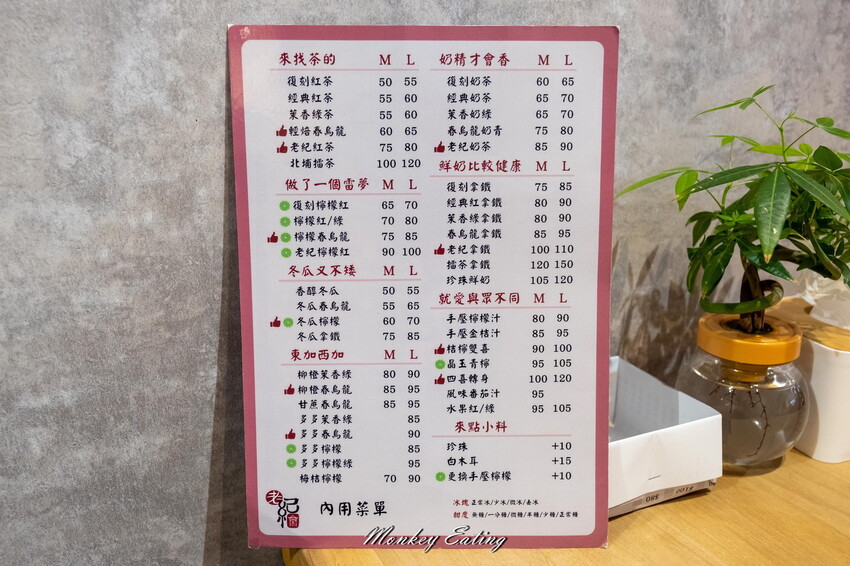 來找茶的 M L
復刻紅茶 50 55
經典紅茶 55 60
茉香綠茶 55 60
輕焙春烏龍 60 65
老紀紅茶 75 80
北埔擂茶 100 120
做了一個雷夢 M L
復刻檸檬紅 65 70
檸檬紅/綠 70 80
檸檬春烏龍 75 85
老紀檸檬紅 90 100
冬瓜又不矮 M L
香醇冬瓜 50 55
冬瓜春烏龍 55 65
冬瓜檸檬 60 70
冬瓜拿鐵 75 85
東加西加 M L
柳橙茉香綠 80 90
柳橙春烏龍 85 95
甘蔗春烏龍 85 95
多多茉香綠 85
多多春烏龍 90
多多檸檬 85
多多檸檬綠 95
梅桔檸檬 70 90
老紀 內用菜單
奶精才會香 M L
復刻奶茶 60 65
經典奶茶 65 70
茉香奶綠 65 70
春烏龍奶青 75 80
老紀奶茶 85 90
鮮奶比較健康 M L
復刻拿鐵 75 85
經典紅拿鐵 80 90
茉香綠拿鐵 80 90
春烏龍拿鐵 85 95
老紀拿鐵 100 110
擂茶拿鐵 120 150
珍珠鮮奶 105 120
就愛與眾不同 M L
手壓檸檬汁 80 90
手壓金桔汁 85 95
桔檸雙喜 90 100
晶玉青檸 95 105
四喜轉身 100 120
風味番茄汁 95
水果紅/綠 95 105
來點小料
珍珠 +10
白木耳 +15
更換手壓檸檬 +10
冰塊 正常冰/少冰/微冰/去冰
甜度 無糖/一分糖/微糖/半糖/少糖/正常糖
Monkey Eating